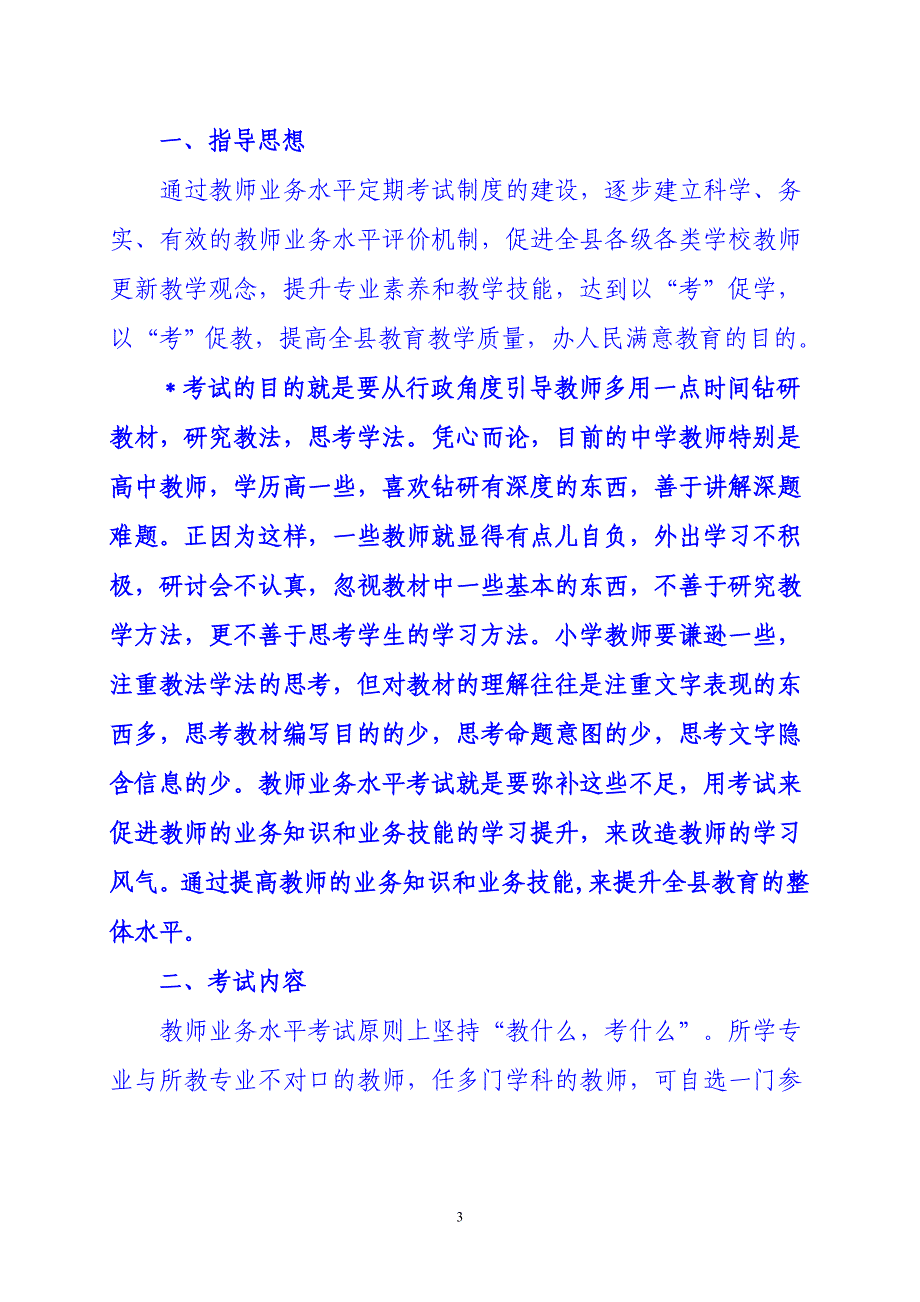 一、指导思想
通过教师业务水平定期考试制度的建设，逐步建立科学、务
实、有效的教师业务水平评价机制，促进全县各级各类学校教师
更新教学观念，提升专业素养和教学技能，达到以“考”促学，
以“考”促教，提高全县教育教学质量，办人民满意教育的目的。
*考试的目的就是要从行政角度引导教师多用一点时间钻研
教材，研究教法，思考学法。凭心而论，目前的中学教师特别是
高中教师，学历高一些，喜欢钻研有深度的东西，善于讲解深题
难题。正因为这样，一些教师就显得有点儿自负，外出学习不积
极，研讨会不认真，忽视教材中一些基本的东西，不善于研究教
学方法，更不善于思考学生的学习方法。小学教师要谦逊一些，
注重教法学法的思考，但对教材的理解往往是注重文字表现的东
西多，思考教材编写目的的少，思考命题意图的少，思考文字隐
含信息的少。教师业务水平考试就是要弥补这些不足，用考试来
促进教师的业务知识和业务技能的学习提升，来改造教师的学习
风气。通过提高教师的业务知识和业务技能,来提升全县教育的整
体水平。
二、考试内容
教师业务水平考试原则上坚持“教什么，考什么”。所学专
业与所教专业不对口的教师，任多门学科的教师，可自选一门参
3